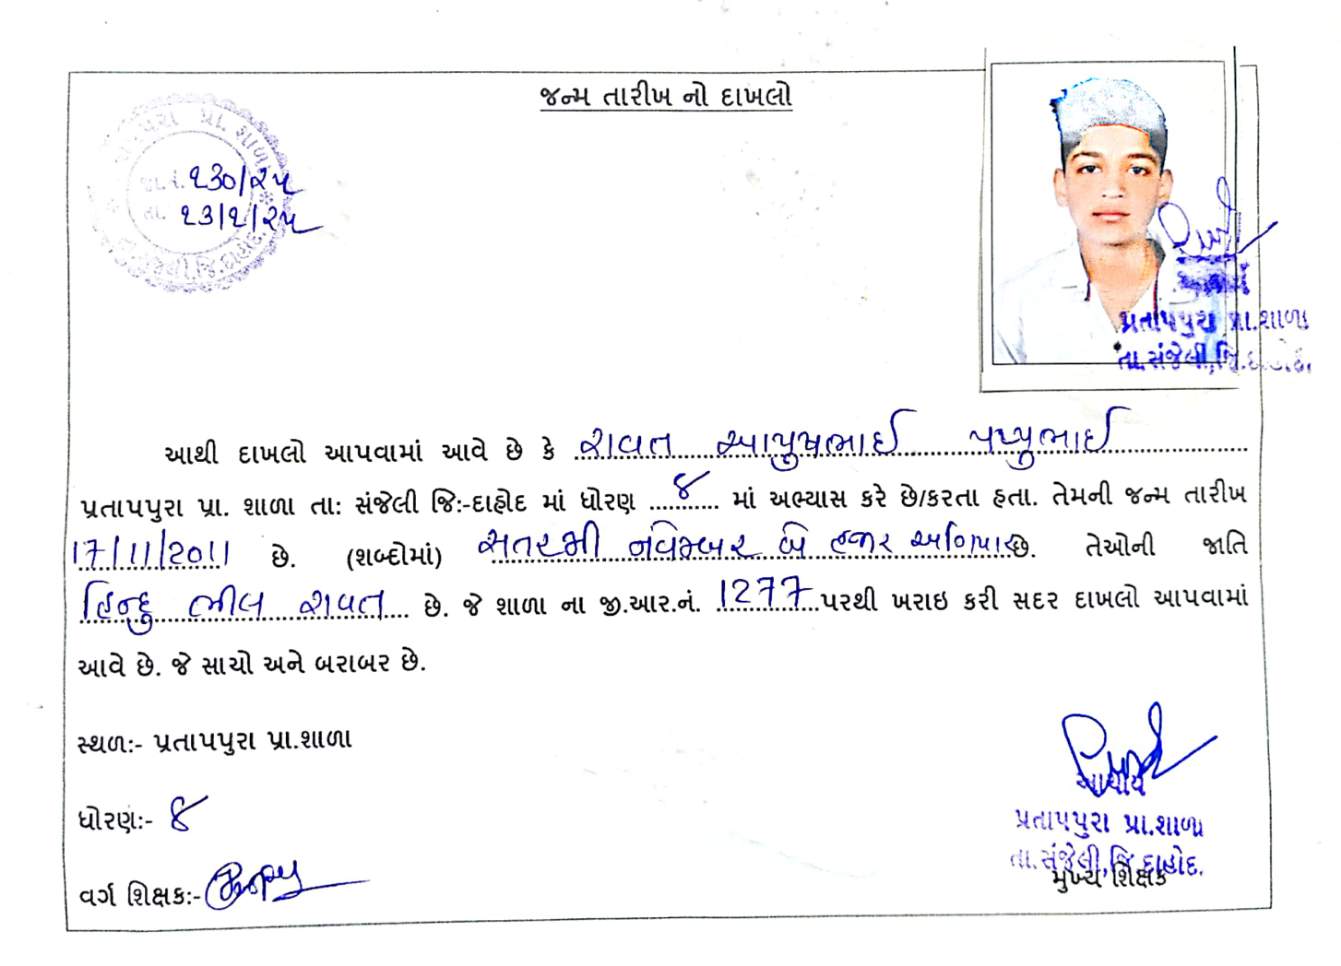 જન્મ તારીખ નો દાખલો
જા.નં. ૧૩૦/૨૫
તા. ૨૩/૧/૨૫
પ્રતાપપુરા પ્રા.શાળા
તા.સંજેલી,જિ.દાહોદ.
આથી દાખલો આપવામાં આવે છે કે રાવત આયુષભાઈ પપ્પુભાઈ
પ્રતાપપુરા પ્રા. શાળા તા: સંજેલી જિ:-દાહોદ માં ધોરણ ૪ માં અભ્યાસ કરે છે/કરતા હતા. તેમની જન્મ તારીખ
17/11/2011 છે. (શબ્દોમાં) સતરમી નવેમ્બર બે હજાર અગિયાર છે. તેઓની જાતિ
હિન્દુ ભીલ રાવત છે. જે શાળા ના જી.આર.નં. 1277 પરથી ખરાઇ કરી સદર દાખલો આપવામાં
આવે છે. જે સાચો અને બરાબર છે.
સ્થળ:- પ્રતાપપુરા પ્રા.શાળા
ધોરણ:- ૪
વર્ગ શિક્ષક:-
આચાર્ય
પ્રતાપપુરા પ્રા.શાળા
તા.સંજેલી,જિ.દાહોદ.
મુખ્ય શિક્ષક